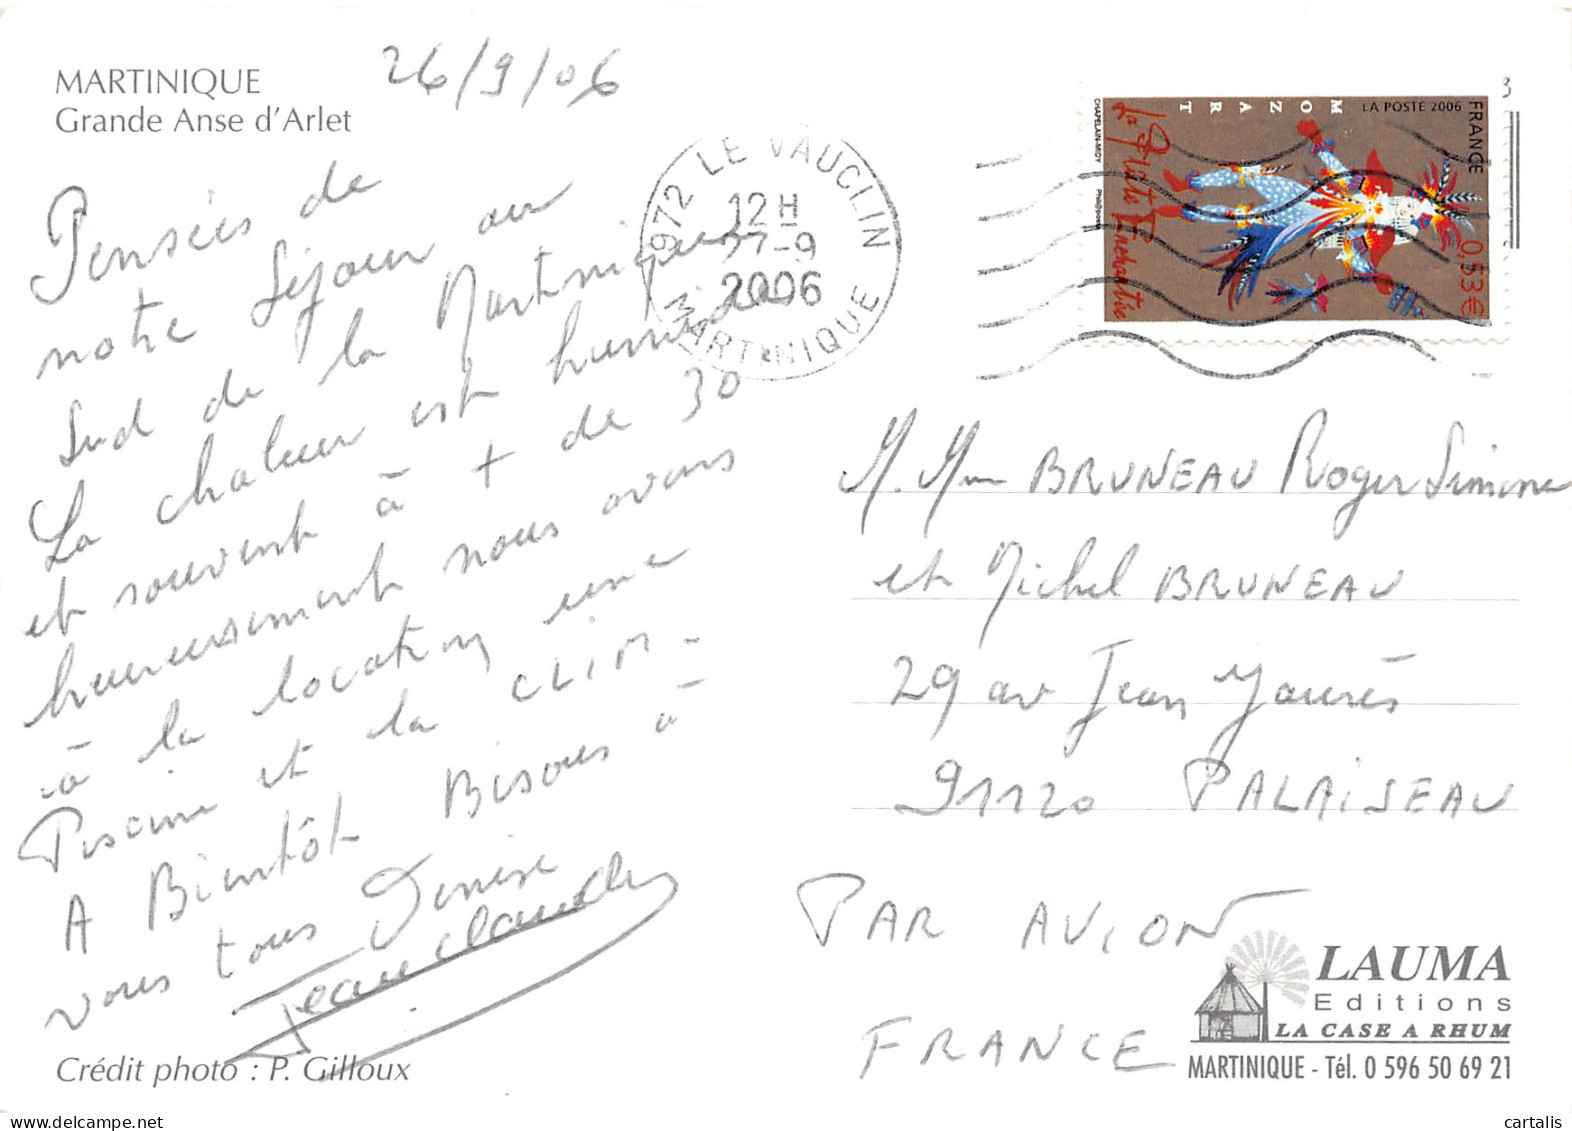 MARTINIQUE
Grande Anse d'Arlet
26/9/06
Pensées de
notre séjour au
Sud de la Martinique
La chaleur est humide
et souvent à + de 30
heureusement nous avons
à la location une
Piscine et la CLIM-
A Bientôt Bisous à
vous tous Denise
Jean claude
Crédit photo : P. Gilloux
972 LE VAUCLIN
12 H
27-9
2006
MARTINIQUE
FRANCE
LA POSTE 2006
MOZART
La Flûte Enchantée
0,53€
CHAPELAIN-MIDY
M. Mme BRUNEAU Roger Simone
et Michel BRUNEAU
29 av Jean Jaurès
91120 PALAISEAU
PAR AVION
FRANCE
LAUMA
Editions
LA CASE A RHUM
MARTINIQUE - Tél. 0 596 50 69 21
delcampe.net
cartalis